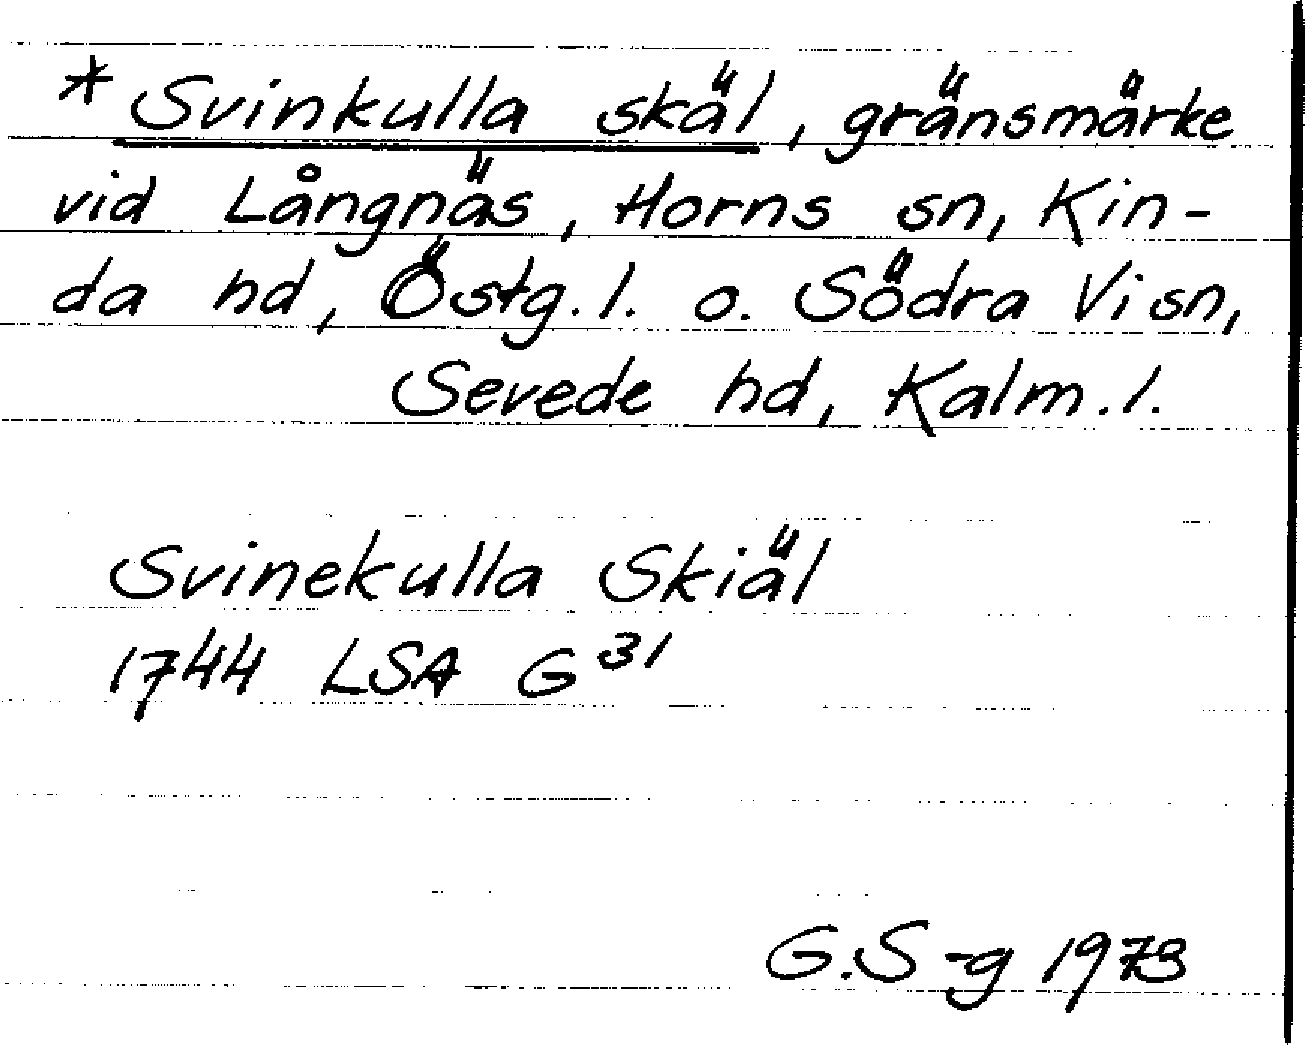 * Svinkulla skäl, gränsmärke
vid Långnäs, Horns sn, Kin-
da hd, Östg. l. o. Södra Vi sn,
Sevede hd, Kalm. l.
Svinekulla Skiäl
1744 LSA G 31
G.S-g 1973